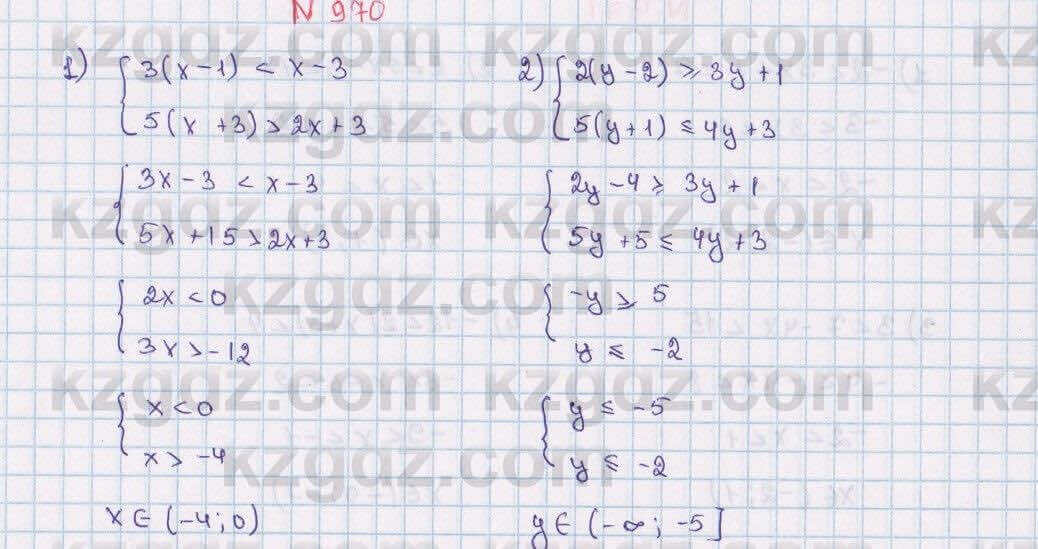 N 970
1) { 3(x-1) < x-3
5(x+3) > 2x+3
{ 3x-3 < x-3
5x+15 > 2x+3
{ 2x < 0
3x > -12
{ x < 0
x > -4
x ∈ (-4; 0)
2) { 2(y-2) ⩾ 3y+1
5(y+1) ⩽ 4y+3
{ 2y-4 ⩾ 3y+1
5y+5 ⩽ 4y+3
{ -y ⩾ 5
y ⩽ -2
{ y ⩽ -5
y ⩽ -2
y ∈ (-∞; -5]
kzgdz.com